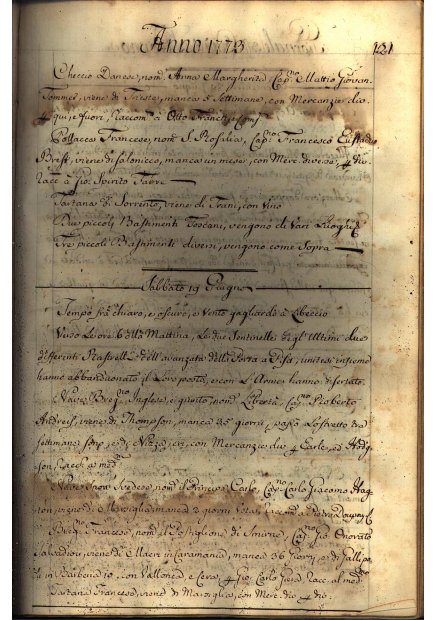 Anno 1773 121
Checcio Danese, nom. Anna Margherita, Cap.no Mattio Giovan
Tommes, viene di Trieste, manca 5 Settimane, con Mercanzie div.
qui, e fuori, Raccom. a Otto Franch, e Comp.
Pollacca Francese, nom. S. Rosalia, Cap.no Francesco
viene di Salonicco, manca un mese, con Merc. diverse, p. div.
Racc. a Gio. Spirito Fabre
Tartana di Sorrento, viene di Trani, con Vino
Due piccoli Bastimenti Toscani, vengono di Vari Luoghi
Tre piccoli Bastimenti diversi, vengono come Sopra
Sabbato 19 Giugno
Tempo frà chiaro, e oscuro, e Vento gagliardo a Libeccio
Verso le ore 6 della Mattina, Le due Sentinelle degl' Ultimi due
differenti Rastrelli dell' avanzata della Porta a Pisa, unitesi insieme
hanno abbandonato il Loro posto, e con l'Armi hanno disertato.
Nave Inglese, e quisto, nom. Libertà, Cap.no Roberto
Andreis, viene di Thompson, manca 35 giorni, passò Lo stretto tre
settimane sono, e di Nizza, jeri, con Mercanzie div. p. Earle, ed Hodg-
son, Racc. a med.mi
Nave Snow Svedese, nom. il Principe Carlo, Cap.no Carlo Giacomo
viene di Marsiglia, manca 2 giorni
Brig.no Francese, nom. il Postiglione di Smirne, Cap.no Gio. Onorato
Salvadou, viene di in Caramania, manca 36 Giorni, e di Gallipo-
con Vallonea, e cera, p. Gio. Carlo Racc. al med.
Tartana Francese, viene di Marsiglia, con Merc. div. p. div.